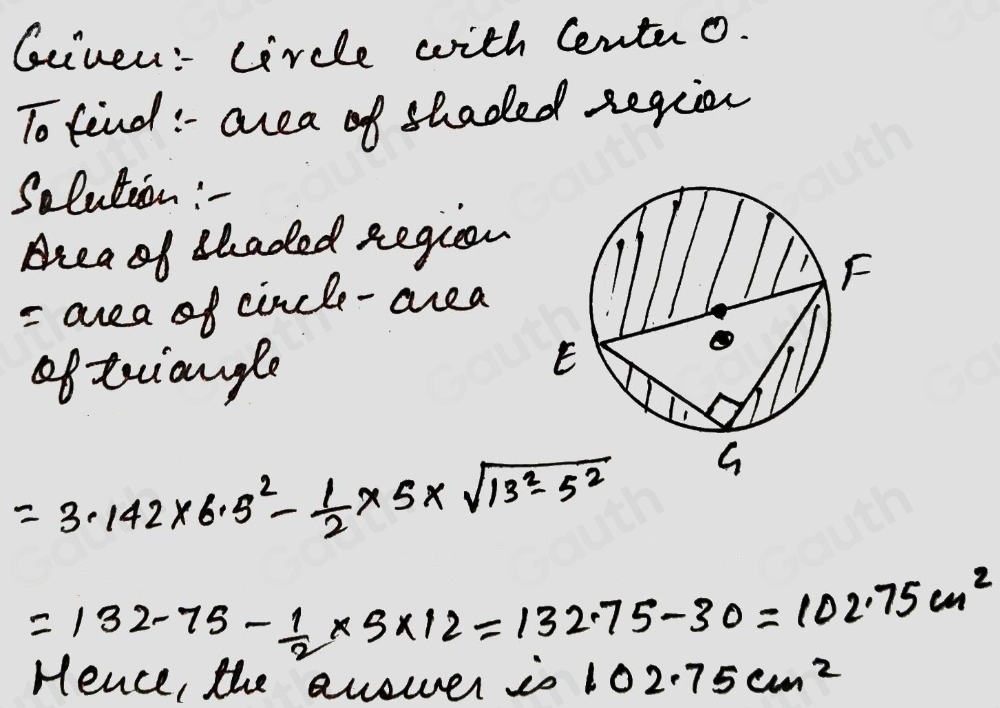 Given:- Circle with Center O.
To find:- area of shaded region
Solution:-
Area of shaded region
= area of circle - area
of triangle
F
E
G
= 3.142 x 6.5² - 1/2 x 5 x √13² - 5²
= 132.75 - 1/2 x 5 x 12 = 132.75 - 30 = 102.75 cm²
Hence, the answer is 102.75 cm²
Gauth